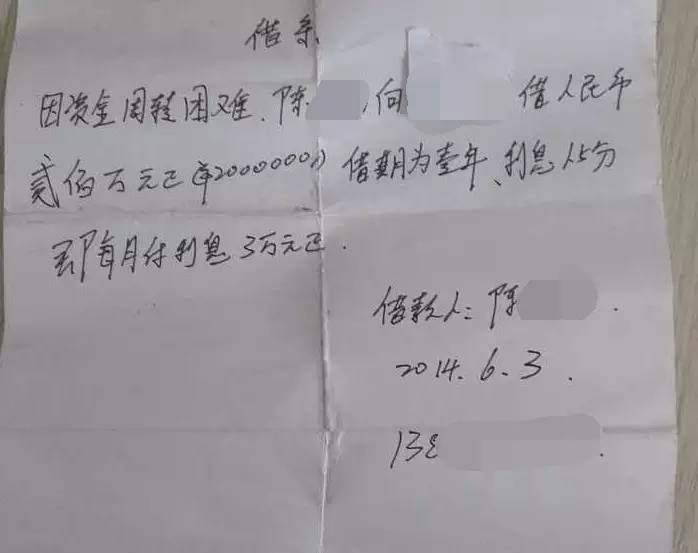 借条
因资金周转困难、陈 向 借人民币
贰佰万元正(¥2000000) 借期为壹年、利息1.5分
即每月付利息3万元正.
借款人: 陈 .
2014.6.3.
13